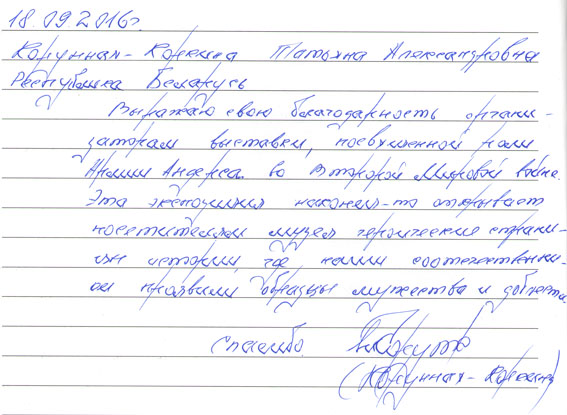 18.09.2016г.
Корунная-Корекина Татьяна Александровна
Республика Беларусь
Выражаю свою благодарность органи-
заторам выставки, посвященной роли
Армии Андерса во Второй Мировой войне.
Эта экспозиция наконец-то открывает
посетителям музея героические страни-
цы истории, где наши соотечественни-
ки проявили образцы мужества и доблести.
Спасибо